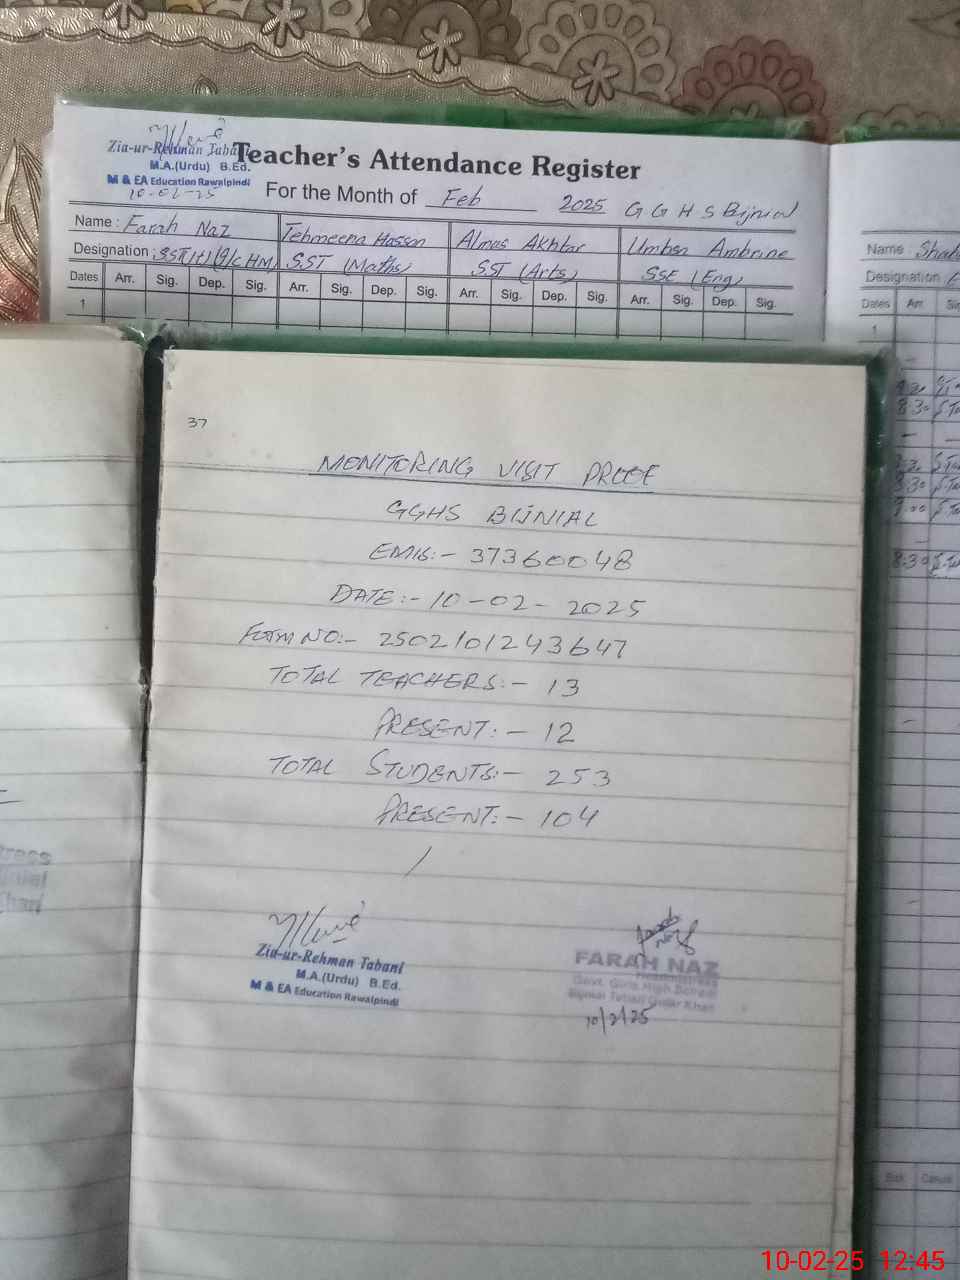 Zia-ur-Rehman Tabani
M.A.(Urdu) B.Ed.
M & EA Education Rawalpindi
10-02-25
Teacher's Attendance Register
For the Month of Feb 2025 G G H S Bijnial
Name : Farah Naz Tehmeena Hassan Almas Akhtar Umben Ambrine
Designation : (S/c HM) SST (Maths) SST (Arts) SSE (Eng)
Dates Arr. Sig. Dep. Sig. Arr. Sig. Dep. Sig. Arr. Sig. Dep. Sig. Arr. Sig. Dep. Sig.
1
Name :
Designation
Dates Arr.
1
8.30
8.30
9.00
8.30
37
MONITORING VISIT PROOF
GGHS BIJNIAL
EMIS:- 37360048
DATE:- 10-02-2025
Form NO:- 2502101243647
TOTAL TEACHERS:- 13
PRESENT:- 12
TOTAL STUDENTS:- 253
PRESENT:- 104
Zia-ur-Rehman Tabani
M.A.(Urdu) B.Ed.
M & EA Education Rawalpindi
Farah
Naz
FARAH NAZ
Headmistress
Govt. Girls High School
Bijnial Tehsil Gujar Khan
10/2/25
Casual
10-02-25 12:45